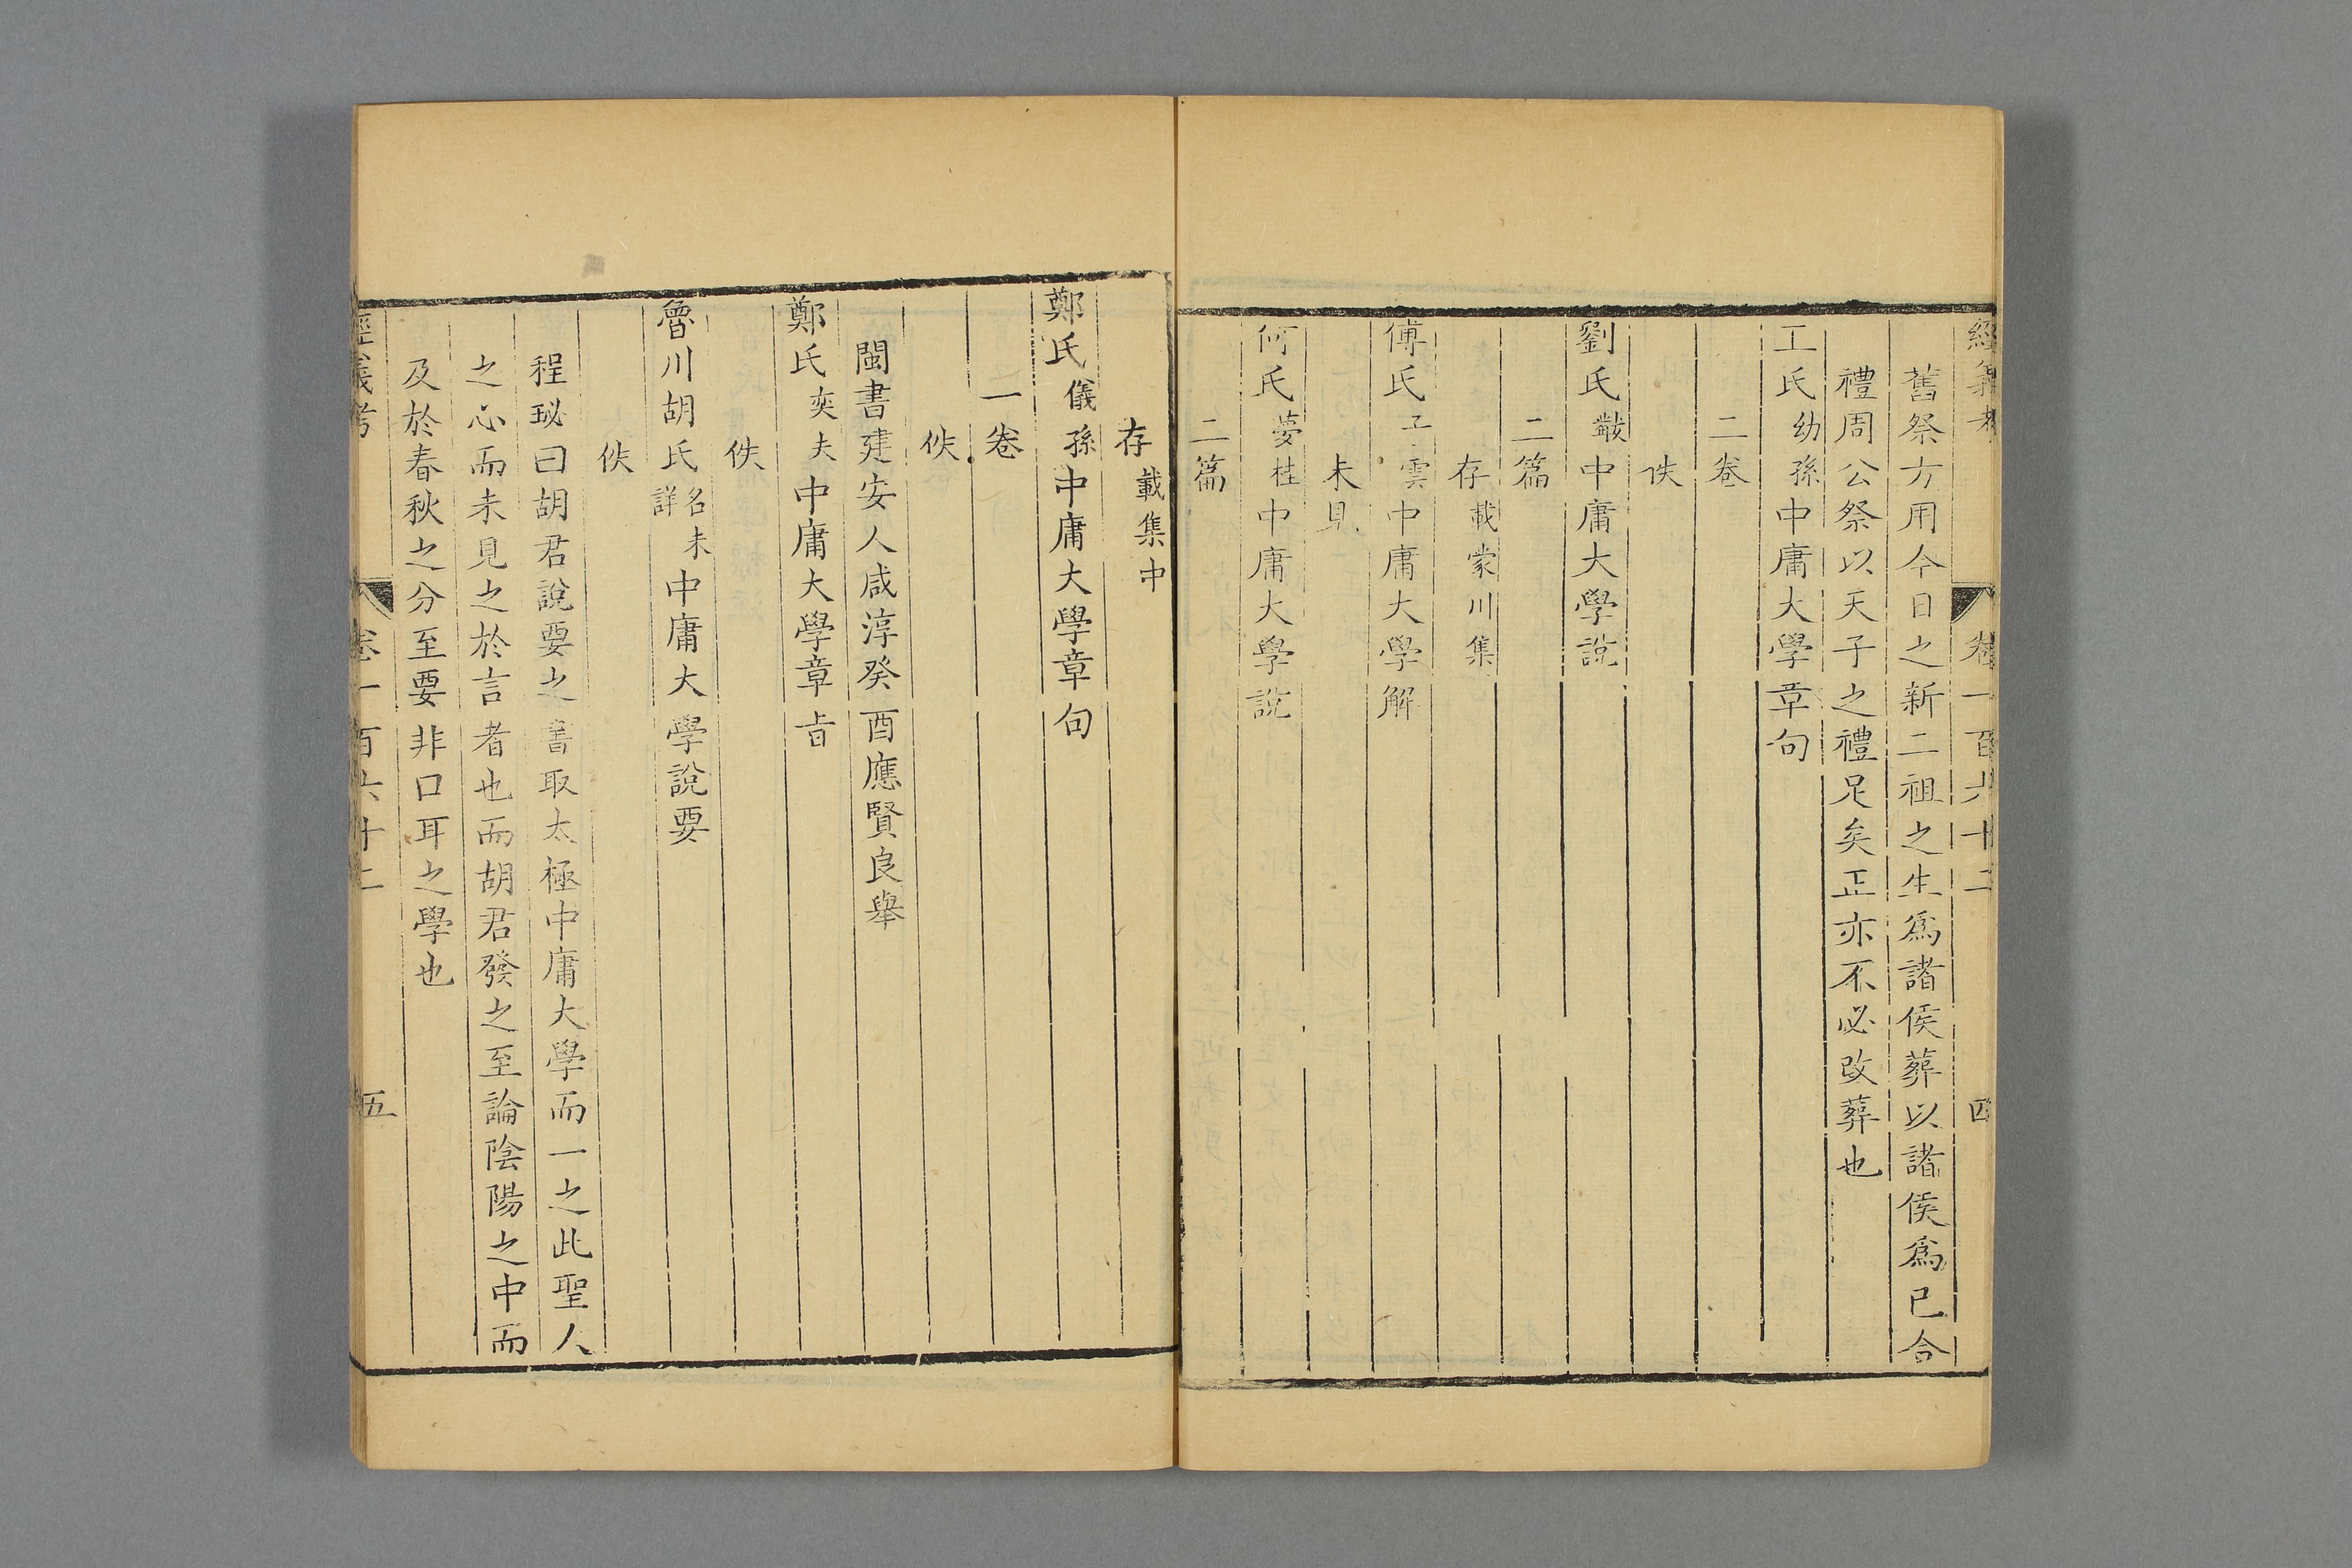 經義考 卷一百六十二 四
舊祭方用今日之新二祖之生爲諸侯葬以諸侯爲已合
禮周公祭以天子之禮足矣正亦不必改葬也
王氏幼孫中庸大學章句
二卷
佚
劉氏黻中庸大學說
二篇
存載蒙川集
傅氏子雲中庸大學解
未見
何氏夢桂中庸大學說
二篇
存載集中
鄭氏儀孫中庸大學章句
一卷
佚
閩書建安人咸淳癸酉應賢良舉
鄭氏奕夫中庸大學章旨
佚
魯川胡氏名未詳中庸大學說要
佚
程珌曰胡君說要之書取太極中庸大學而一之此聖人
之心而未見之於言者也而胡君發之至論陰陽之中而
及於春秋之分至要非口耳之學也
經義考 卷一百六十二 五